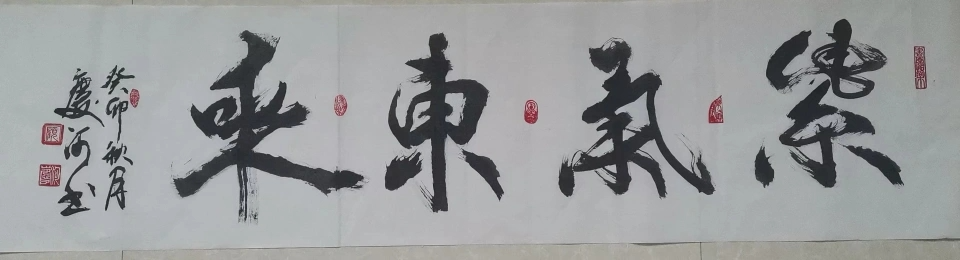 紫氣東來
癸卯秋月
慶河書